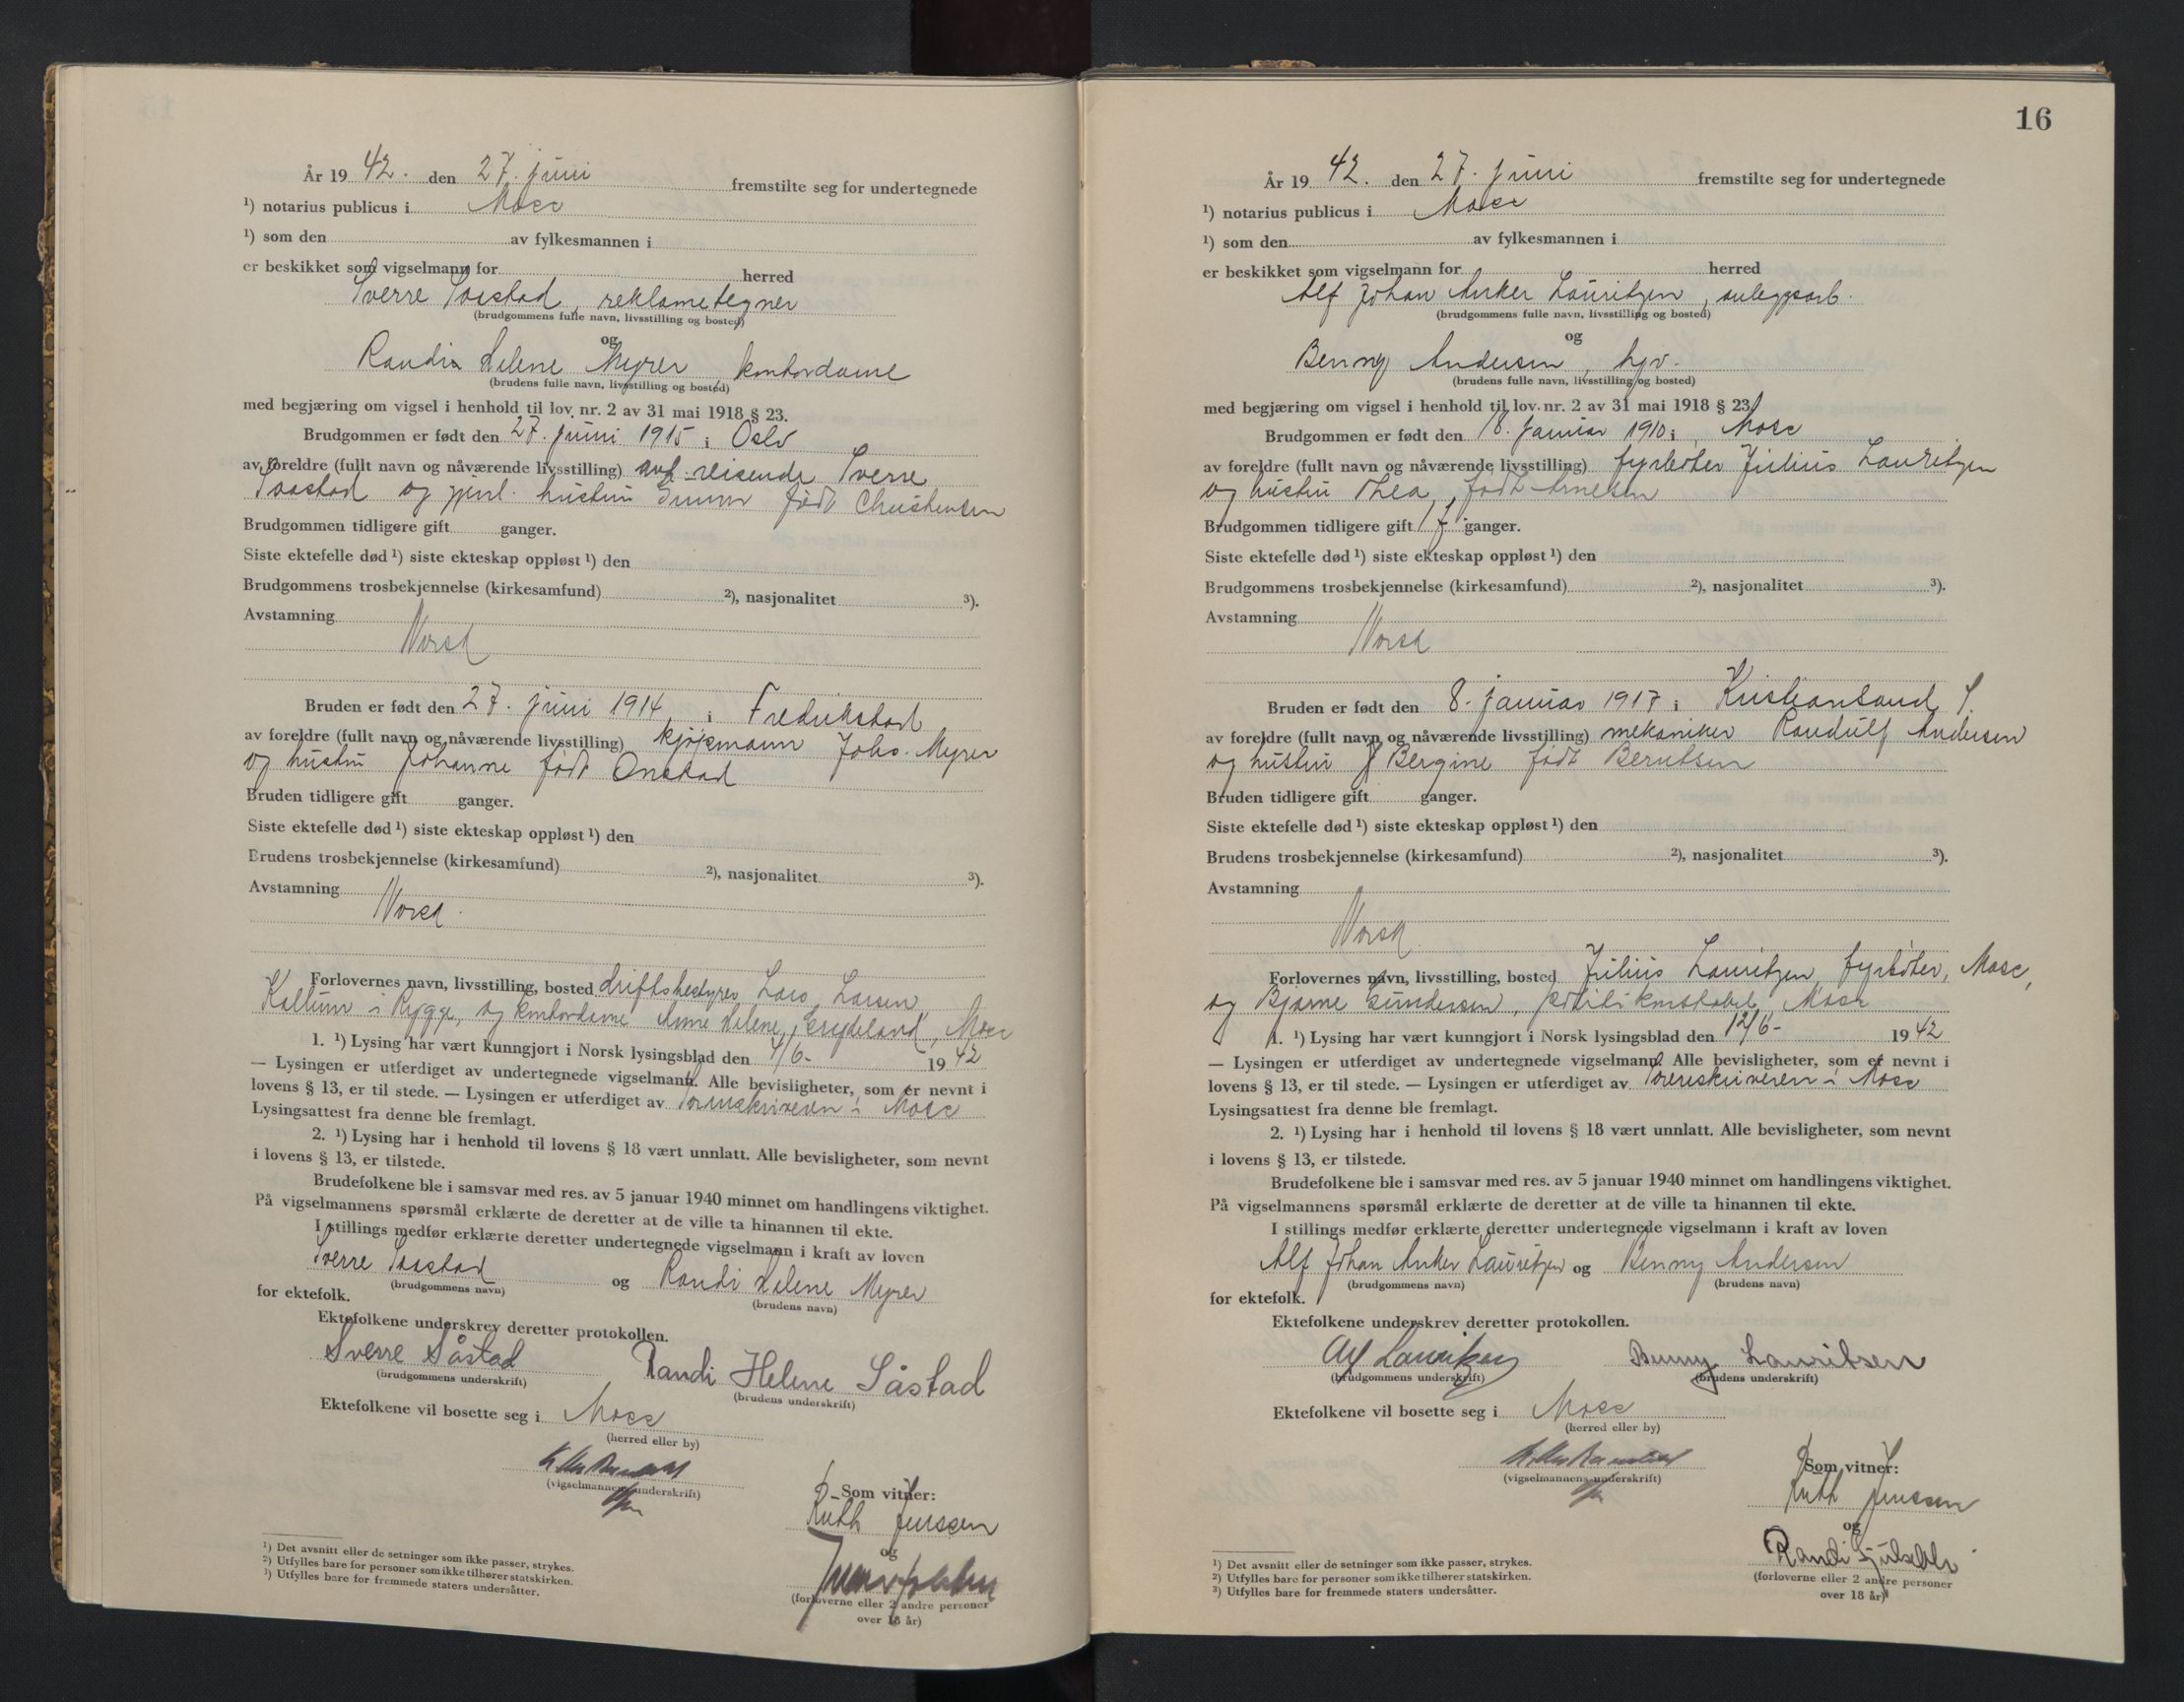 År 19 42. den 27. juni fremstilte seg for undertegnede
¹) notarius publicus i Moss
¹) som den av fylkesmannen i
er beskikket som vigselmann for herred
Sverre Saastad, reklametegner
(brudgommens fulle navn, livsstilling og bosted)
og
Randi Helene Myrer, kontordame
(brudens fulle navn, livsstilling og bosted)
med begjæring om vigsel i henhold til lov nr. 2 av 31 mai 1918 § 23.
Brudgommen er født den 27. juni 1915 i Oslo
av foreldre (fullt navn og nåværende livsstilling) reisende Sverre
Saastad og hustru født Christensen
Brudgommen tidligere gift ganger.
Siste ektefelle død ¹) siste ekteskap oppløst ¹) den
Brudgommens trosbekjennelse (kirkesamfund) ²), nasjonalitet ³).
Avstamning
Norsk
Bruden er født den 27. juni 1914 i Fredrikstad
av foreldre (fullt navn og nåværende livsstilling) kjøpmann Johs. Myrer
og hustru Johanne født Onstad
Bruden tidligere gift ganger.
Siste ektefelle død ¹) siste ekteskap oppløst ¹) den
Brudens trosbekjennelse (kirkesamfund) ²), nasjonalitet ³).
Avstamning
Norsk.
Forlovernes navn, livsstilling, bosted driftsbestyrer Lars Larsen
i Rygge, og kontordame Anne Helene, Moss
1. ¹) Lysing har vært kunngjort i Norsk lysingsblad den 4/6- 19 42
— Lysingen er utferdiget av undertegnede vigselmann. Alle bevisligheter, som er nevnt i
lovens § 13, er til stede. — Lysingen er utferdiget av Sorenskriveren i Moss
Lysingsattest fra denne ble fremlagt.
2. ¹) Lysing har i henhold til lovens § 18 vært unnlatt. Alle bevisligheter, som nevnt
i lovens § 13, er tilstede.
Brudefolkene ble i samsvar med res. av 5 januar 1940 minnet om handlingens viktighet.
På vigselmannens spørsmål erklærte de deretter at de ville ta hinannen til ekte.
I stillings medfør erklærte deretter undertegnede vigselmann i kraft av loven
Sverre Saastad og Randi Helene Myrer
(brudgommens navn) (brudens navn)
for ektefolk.
Ektefolkene underskrev deretter protokollen.
Sverre Såstad Randi Helene Såstad
(brudgommens underskrift) (brudens underskrift)
Ektefolkene vil bosette seg i Moss
(herred eller by)
(vigselmannens underskrift)
Som vitner:
Ruth Jenssen
og
(forloverne eller 2 andre personer
over 18 år)
¹) Det avsnitt eller de setninger som ikke passer, strykes.
²) Utfylles bare for personer som ikke tilhører statskirken.
³) Utfylles bare for fremmede staters undersåtter.
16
År 19 42. den 27. juni fremstilte seg for undertegnede
¹) notarius publicus i Moss
¹) som den av fylkesmannen i
er beskikket som vigselmann for herred
Alf Johan Anker Lauritzen, anleggsarb.
(brudgommens fulle navn, livsstilling og bosted)
og
Benny Andersen, hgv.
(brudens fulle navn, livsstilling og bosted)
med begjæring om vigsel i henhold til lov. nr. 2 av 31 mai 1918 § 23.
Brudgommen er født den 18. januar 1910 i Moss
av foreldre (fullt navn og nåværende livsstilling) fyrbøter Julius Lauritzen
og hustru Thea, født Arnesen
Brudgommen tidligere gift ganger.
Siste ektefelle død ¹) siste ekteskap oppløst ¹) den
Brudgommens trosbekjennelse (kirkesamfund) ²), nasjonalitet ³).
Avstamning
Norsk
Bruden er født den 8. januar 1917 i Kristiansand S.
av foreldre (fullt navn og nåværende livsstilling) mekaniker Randulf Andersen
og hustru Bergine født Berntsen
Bruden tidligere gift ganger.
Siste ektefelle død ¹) siste ekteskap oppløst ¹) den
Brudens trosbekjennelse (kirkesamfund) ²), nasjonalitet ³).
Avstamning
Norsk
Forlovernes navn, livsstilling, bosted Julius Lauritzen, fyrbøter, Moss,
og Bjarne Gundersen, politikonstabel, Moss
1. ¹) Lysing har vært kunngjort i Norsk lysingsblad den 12/6- 19 42
— Lysingen er utferdiget av undertegnede vigselmann. Alle bevisligheter, som er nevnt i
lovens § 13, er til stede. — Lysingen er utferdiget av Sorenskriveren i Moss
Lysingsattest fra denne ble fremlagt.
2. ¹) Lysing har i henhold til lovens § 18 vært unnlatt. Alle bevisligheter, som nevnt
i lovens § 13, er tilstede.
Brudefolkene ble i samsvar med res. av 5 januar 1940 minnet om handlingens viktighet.
På vigselmannens spørsmål erklærte de deretter at de ville ta hinannen til ekte.
I stillings medfør erklærte deretter undertegnede vigselmann i kraft av loven
Alf Johan Anker Lauritzen og Benny Andersen
(brudgommens navn) (brudens navn)
for ektefolk.
Ektefolkene underskrev deretter protokollen.
Alf Lauritzen Benny Lauritsen
(brudgommens underskrift) (brudens underskrift)
Ektefolkene vil bosette seg i Moss
(herred eller by)
(vigselmannens underskrift)
Som vitner:
Ruth Jenssen
og
Randi
(forloverne eller 2 andre personer
over 18 år)
¹) Det avsnitt eller de setninger som ikke passer, strykes.
²) Utfylles bare for personer som ikke tilhører statskirken.
³) Utfylles bare for fremmede staters undersåtter.